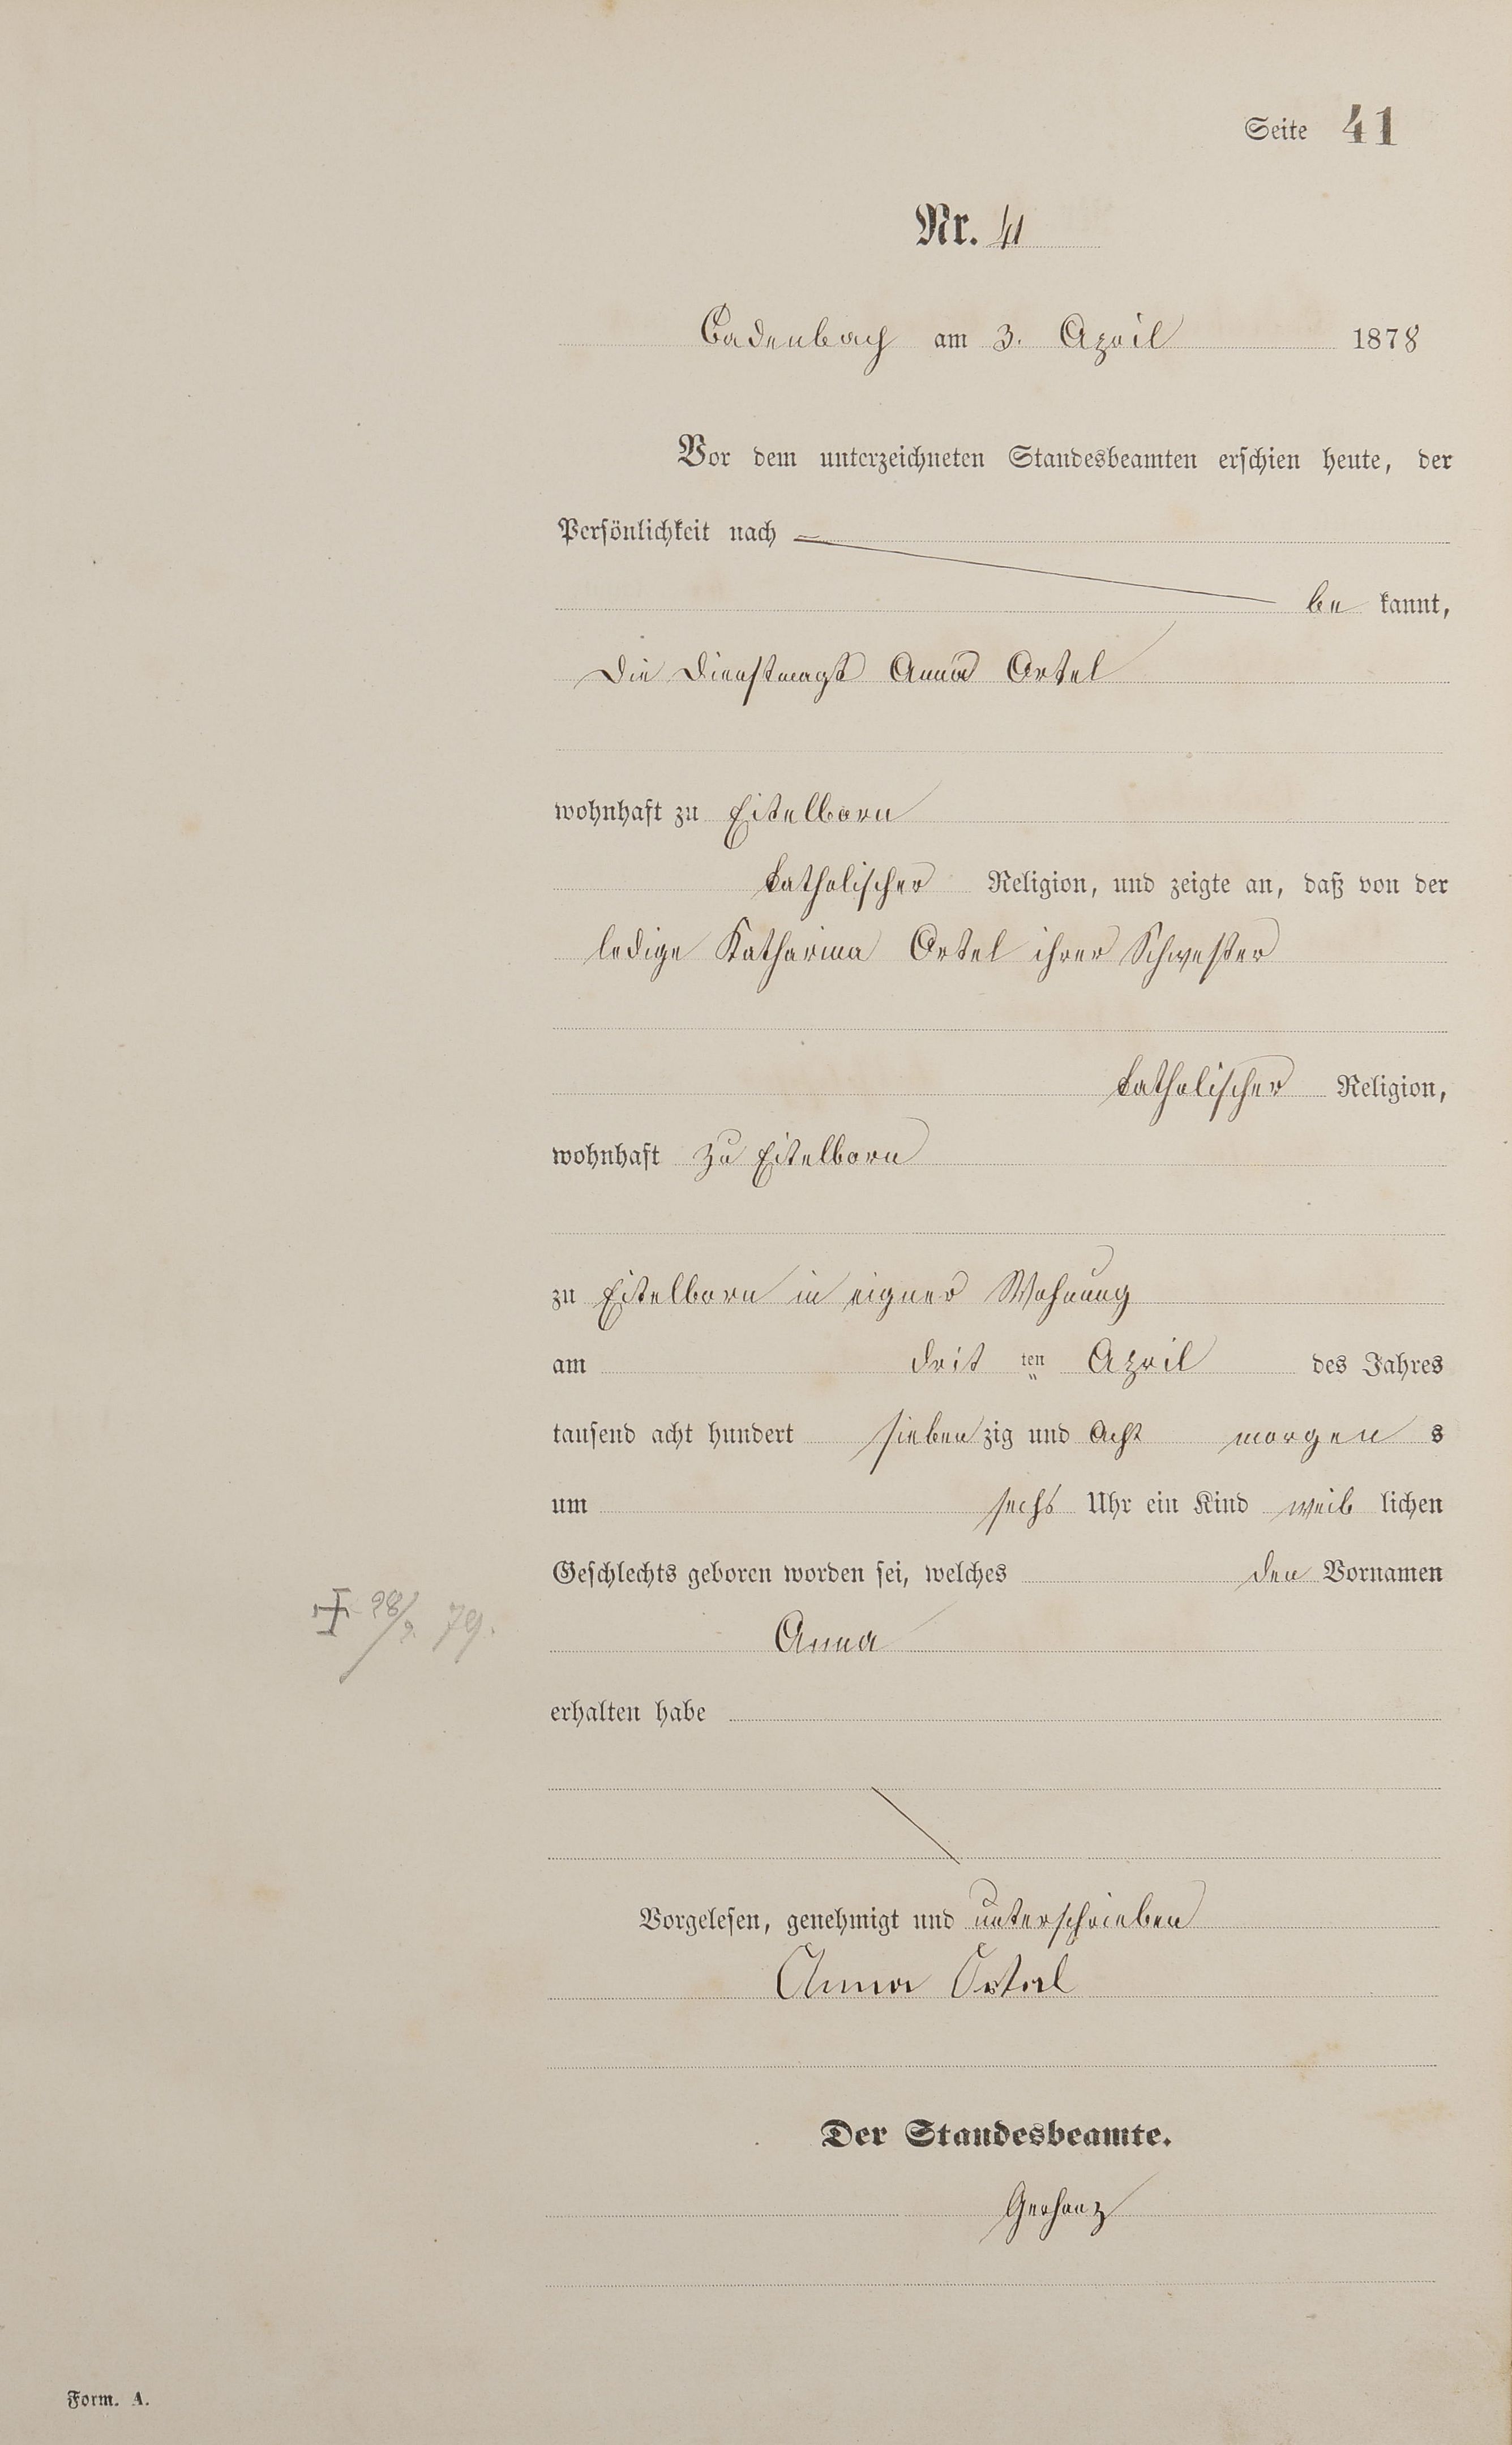 Seite 41
Nr. 41
Cadenbach am 3. April 1878
Vor dem unterzeichneten Standesbeamten erschien heute, der
Persönlichkeit nach
be kannt,
die Dienstmagd Anna Ortel
wohnhaft zu Eitelborn
katholischer Religion, und zeigte an, daß von der
ledige Katharina Ortel ihrer Schwester
katholischer Religion,
wohnhaft zu Eitelborn
zu Eitelborn in eigner Wohnung
am drit ten April des Jahres
tausend acht hundert siebenzig und acht morgen s
um sechs Uhr ein Kind weib lichen
Geschlechts geboren worden sei, welches den Vornamen
† 28/2. 79.
Anna
erhalten habe
Vorgelesen, genehmigt und unterschrieben
Anna Ortel
Der Standesbeamte.
Gerhanz
Form. A.